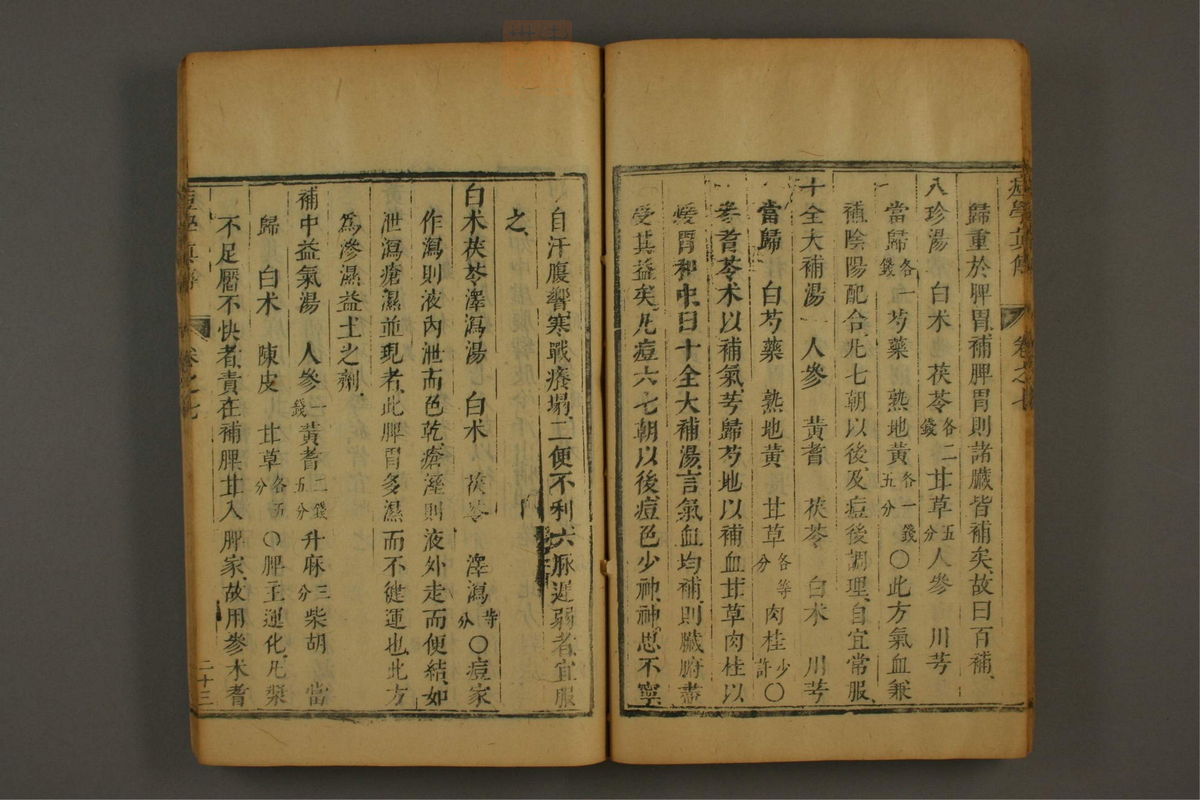 痘學真傳　卷之七
歸重於脾胃、補脾胃則諸臟皆補矣、故曰百補、
八珍湯　白术　茯苓各二錢　甘草五分　人參　川芎
當歸各一錢　芍藥　熟地黃各一錢五分　〇此方氣血兼
補陰陽配合、凡七朝以後及痘後調理、自宜常服、
十全大補湯　人參　黃耆　茯苓　白术　川芎
當歸　白芍藥　熟地黃　甘草各等分　肉桂少許　〇
參耆苓术以補氣、芎歸芍地以補血、甘草肉桂以
煖胃和中、曰十全大補湯、言氣血均補、則臟腑盡
受其益矣、凡痘六七朝以後、痘色少神、神思不寧
自汗腹響、寒戰癢塌、二便不利、六脉遲弱者、宜服
之、
白术茯苓澤瀉湯　白术　茯苓　澤瀉等分　〇痘家
作瀉則液內泄而色乾、瘡溼則液外走而便結、如
泄瀉瘡濕並現者、此脾胃多濕而不健運也、此方
爲滲濕益土之劑、
補中益氣湯　人參一錢　黃耆二錢五分　升麻三分　柴胡　當
歸　白术　陳皮　甘草各五分　〇脾主運化、凡漿
不足靨不快者、責在補脾、甘入脾家、故用參术耆
痘學真傳　卷之七　二十三